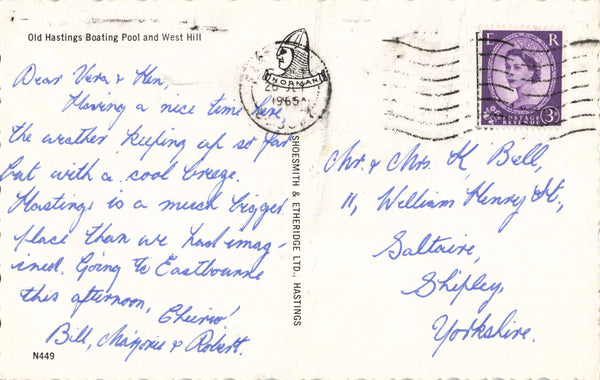 Old Hastings Boating Pool and West Hill
Dear Vera & Ken,
Having a nice time here
the weather keeping up so far
but with a cool breeze.
Hastings is a much bigger
place than we had imag-
ined. Going to Eastbourne
this afternoon,
Cheerio!
Bill, Marjorie & Robert.
N449
SHOESMITH & ETHERIDGE LTD., HASTINGS
NORMAN
1965
E R
3D
POSTAGE
REVENUE
Mr. & Mrs. K. Bell,
11, William Henry St.,
Saltaire,
Shipley,
Yorkshire.